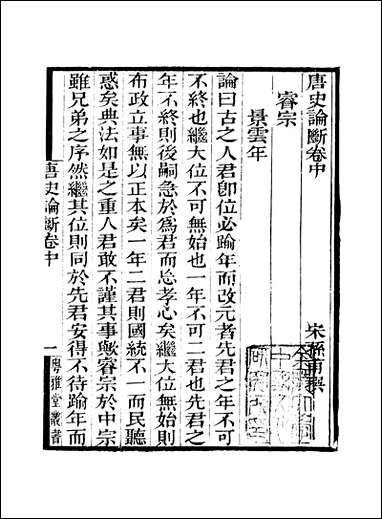 唐史論斷卷中
宋孫甫撰
睿宗
景雲年
論曰古之人君卽位必踰年而改元者先君之年不可
不終也繼大位不可無始也一年不可二君也先君之
年不終則後嗣急於為君而忘孝心矣繼大位無始則
布政立事無以正本矣一年二君則國統不一而民聽
惑矣典法如是之重人君敢不謹其事歟睿宗於中宗
雖兄弟之序然繼其位則同於先君安得不待踰年而
唐史論斷卷中
一
粵雅堂叢書